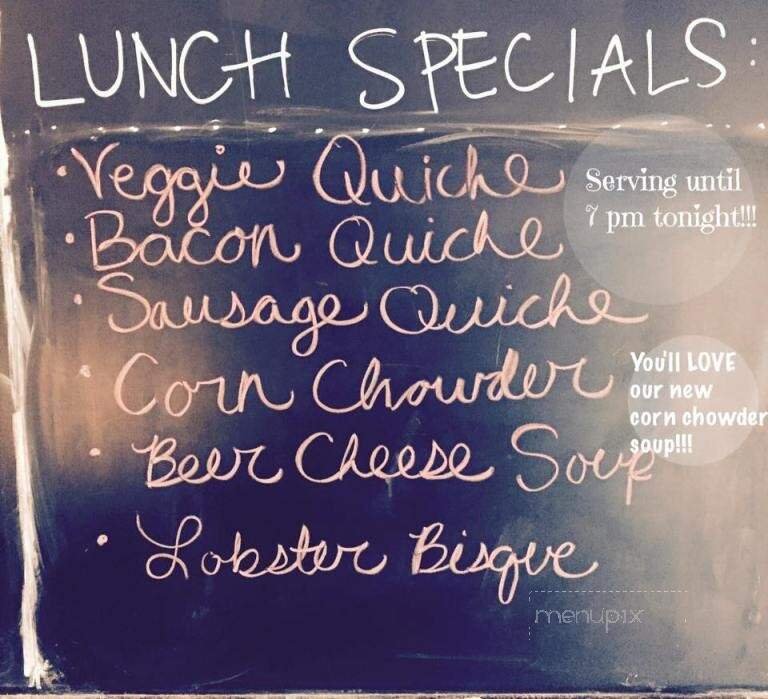 LUNCH SPECIALS:
• Veggie Quiche
Serving until
7 pm tonight!!!
• Bacon Quiche
• Sausage Quiche
• Corn Chowder
You'll LOVE
our new
corn chowder
soup!!!
• Beer Cheese Soup
• Lobster Bisque
menupix